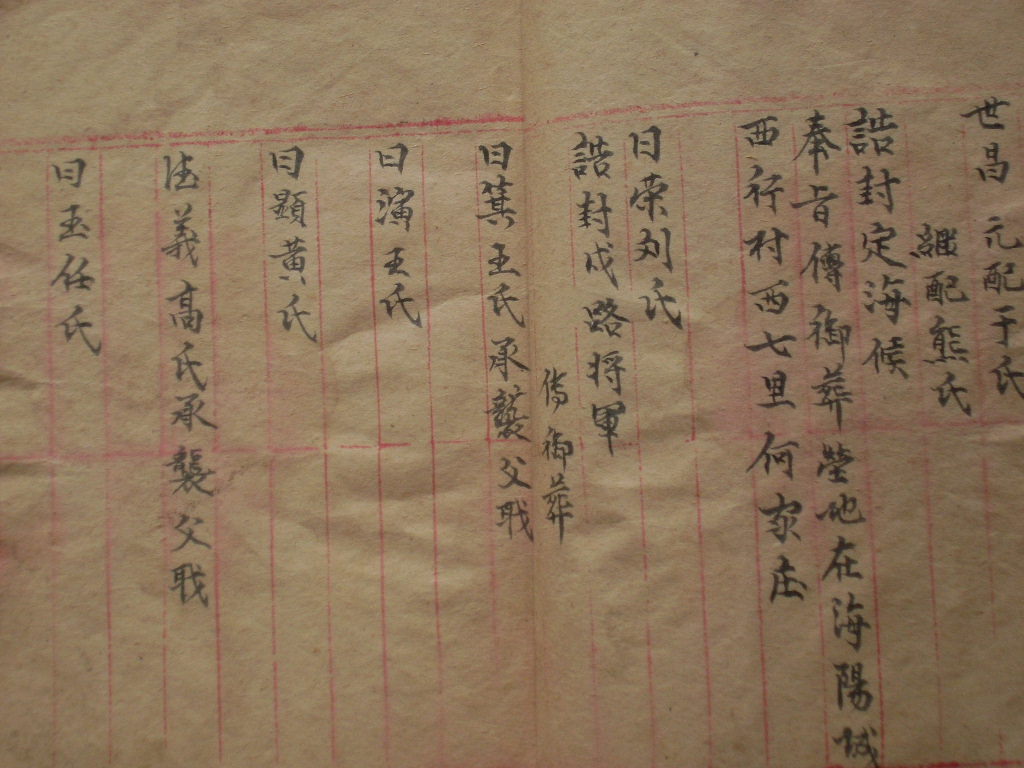 世昌 元配于氏
継配熊氏
誥封定海候
奉旨傳御葬塋地在海陽城
西行村西七里何家庄
曰荣刘氏
誥封戍略将軍
傳御葬
曰箕王氏承襲父職
曰演王氏
曰顕黄氏
法義高氏承襲父職
曰玉任氏